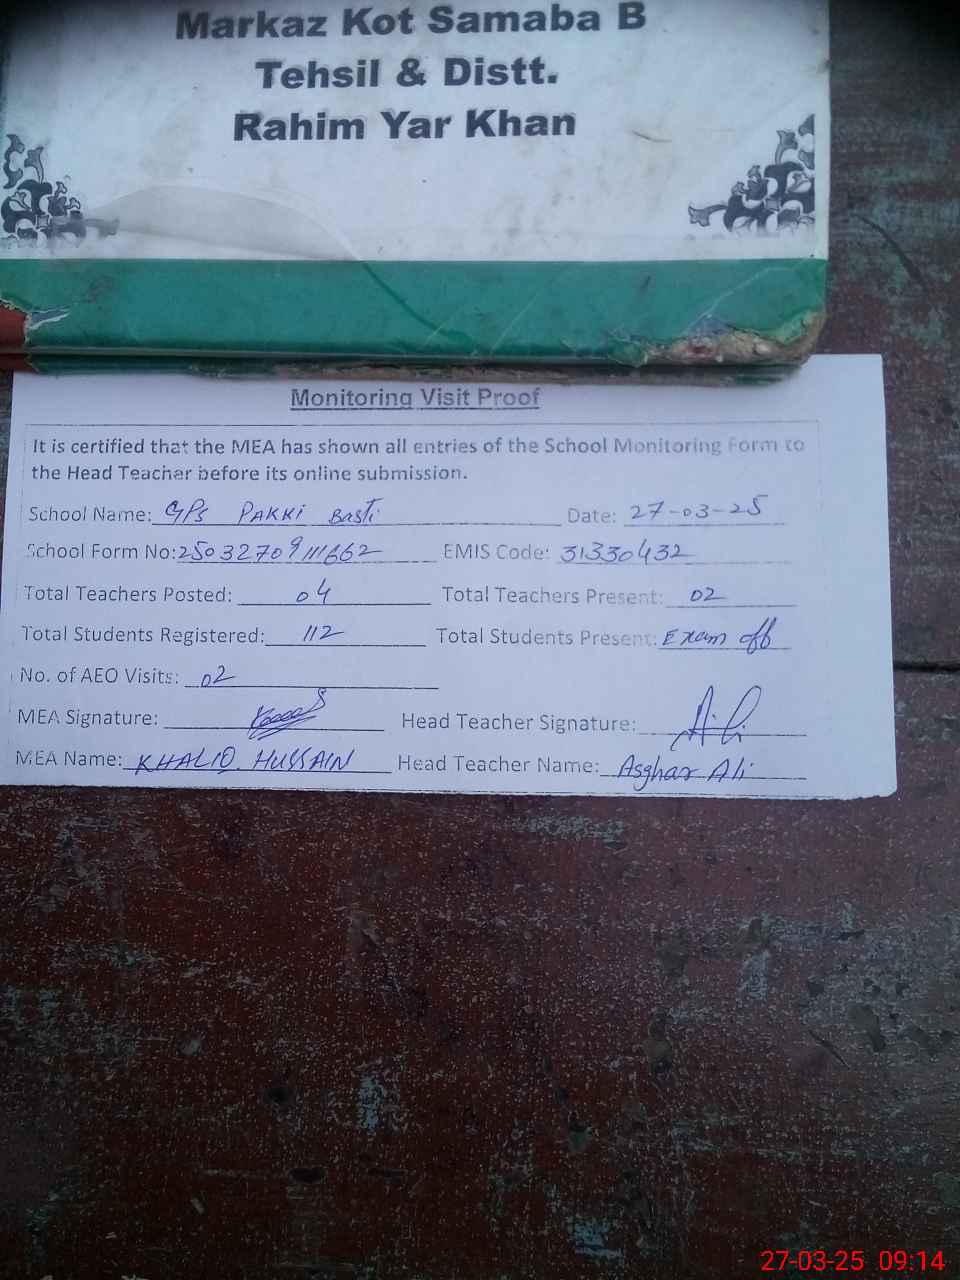 Markaz Kot Samaba B
Tehsil & Distt.
Rahim Yar Khan
Monitoring Visit Proof
It is certified that the MEA has shown all entries of the School Monitoring Form to
the Head Teacher before its online submission.
School Name: GPS PAKKI Basti Date: 27-03-25
School Form No: 25032709111662 EMIS Code: 31330432
Total Teachers Posted: 04 Total Teachers Present: 02
Total Students Registered: 112 Total Students Present: Exam off
No. of AEO Visits: 02
MEA Signature: Head Teacher Signature: Ali
MEA Name: KHALID HUSSAIN Head Teacher Name: Asghar Ali
27-03-25 09:14